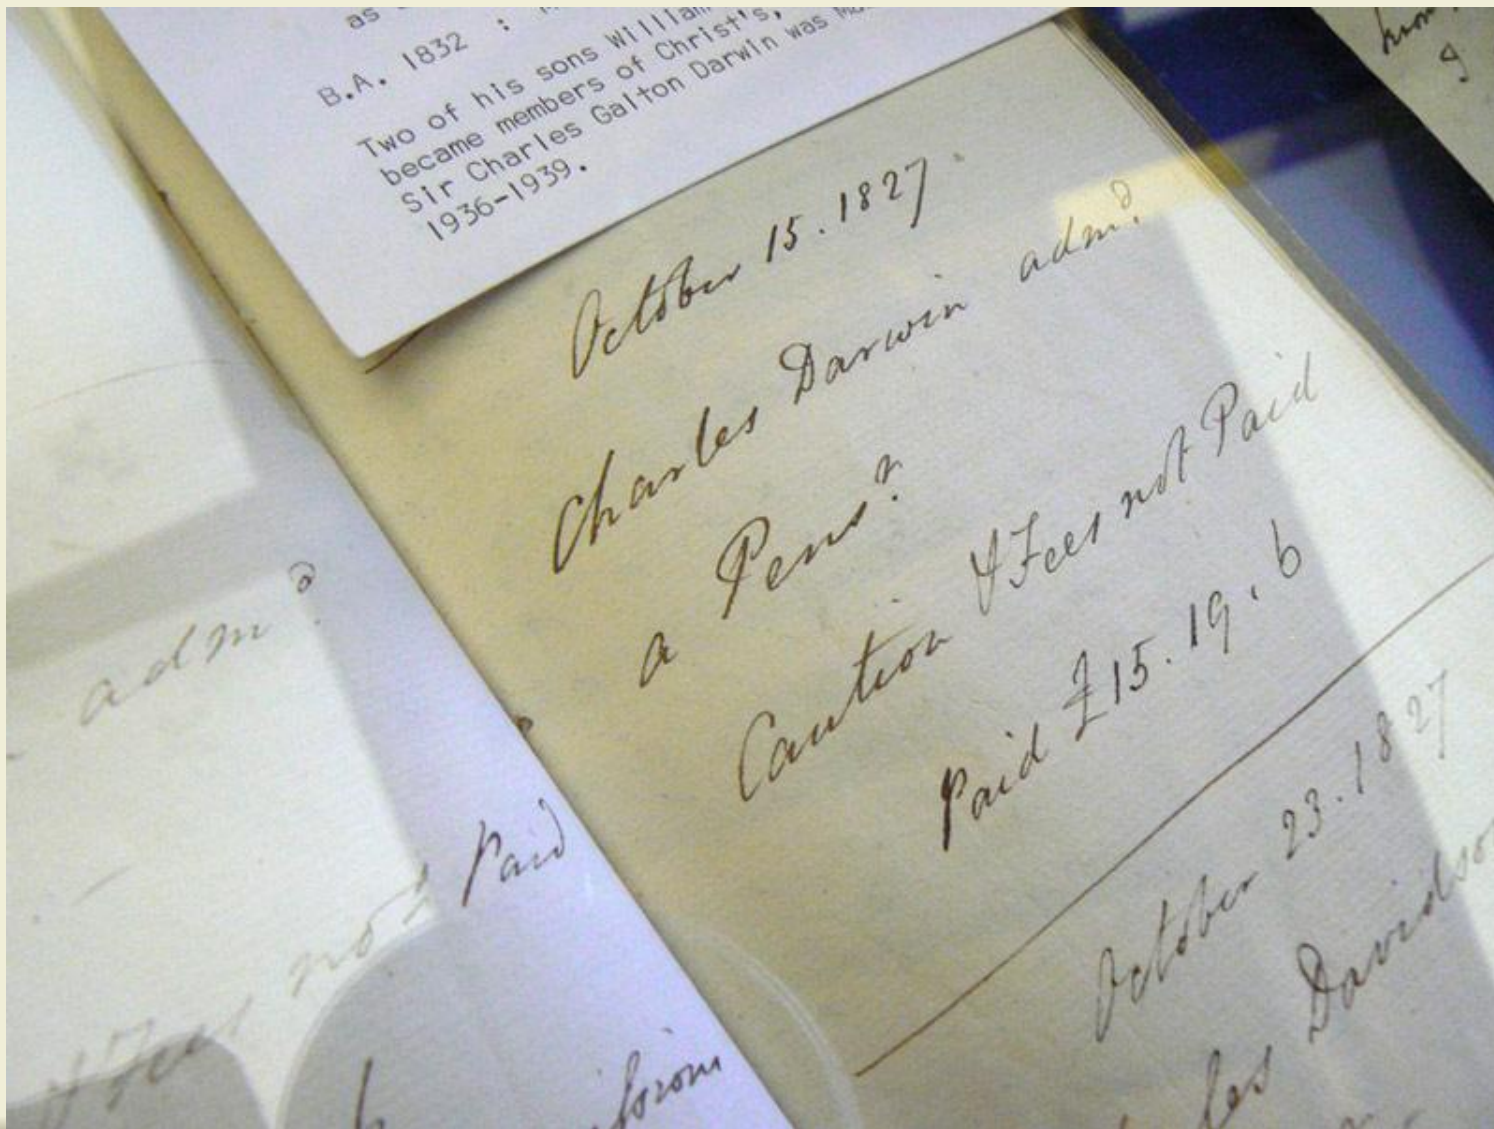 as
B.A. 1832 :
Two of his sons William
became members of Christ's,
Sir Charles Galton Darwin was
1936-1939.
October 15. 1827.
Charles Darwin adm.d
a Pens.r
Caution & Fees not Paid
Paid £15. 19. 6
October 23. 1827
Davidson
adm.d
& Fees not Paid